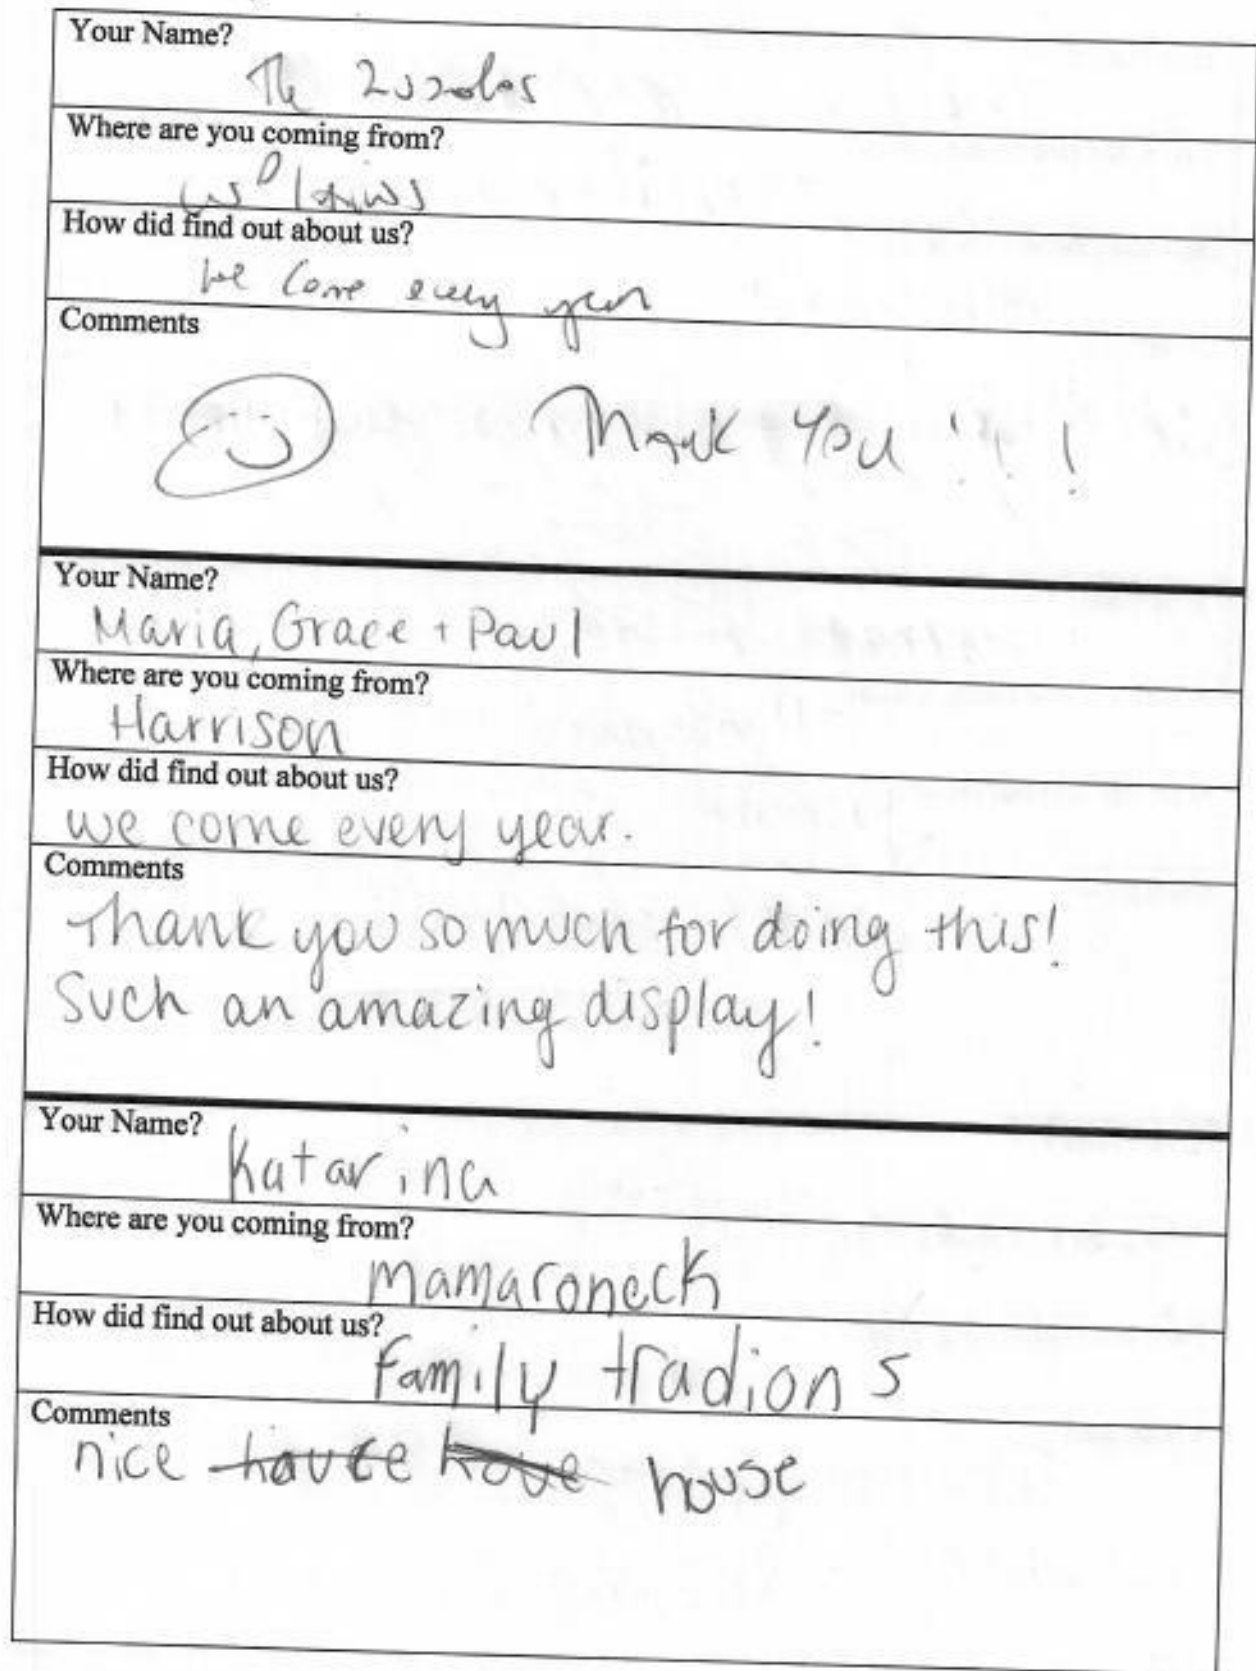 Your Name?
The
Where are you coming from?
How did find out about us?
we come every year
Comments
Thank You !!!
Your Name?
Maria, Grace + Paul
Where are you coming from?
Harrison
How did find out about us?
we come every year.
Comments
Thank you so much for doing this!
Such an amazing display!
Your Name?
Katarina
Where are you coming from?
mamaroneck
How did find out about us?
Family tradions
Comments
nice house